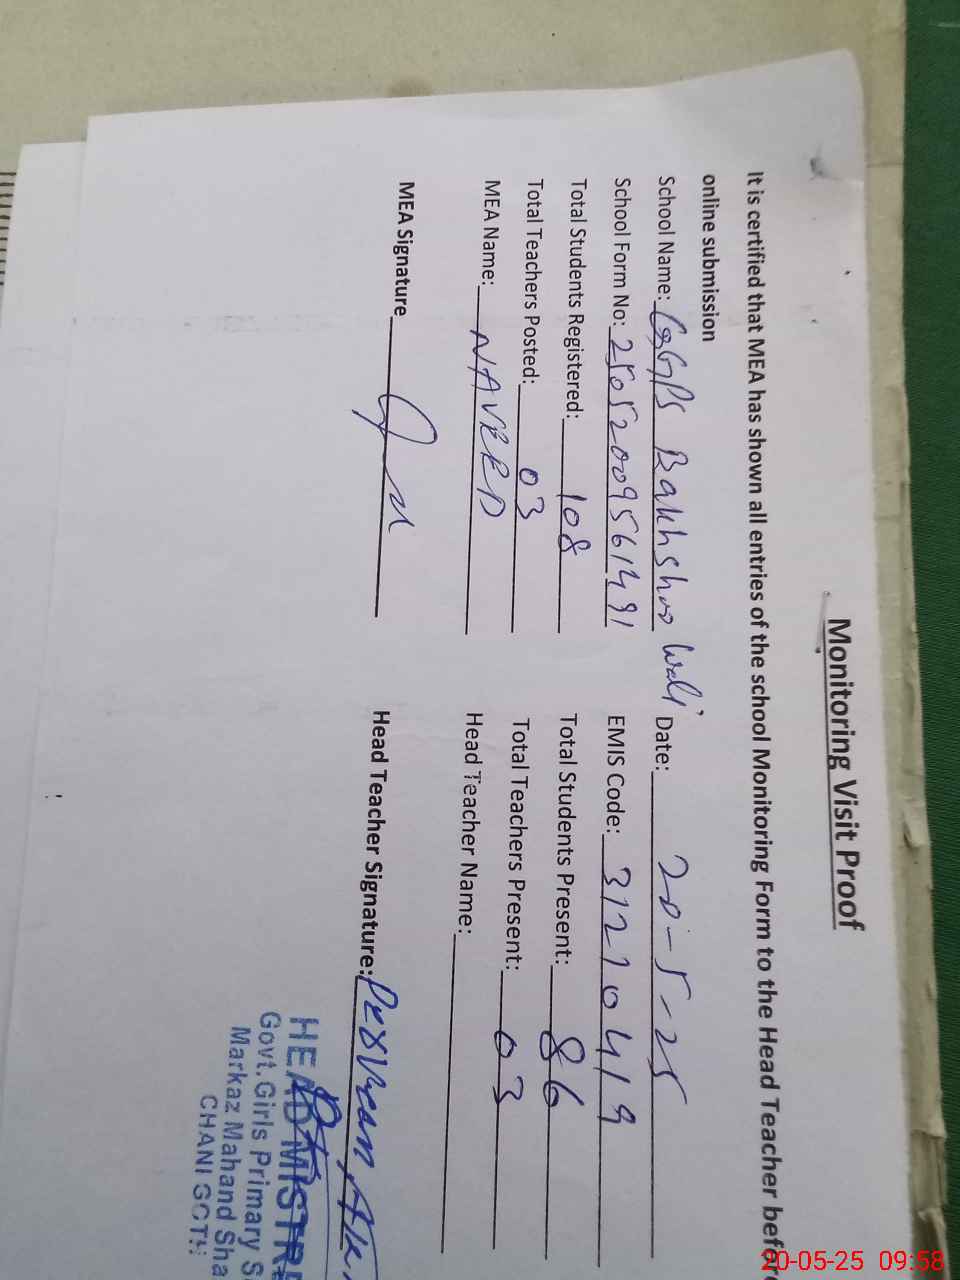 Monitoring Visit Proof
It is certified that MEA has shown all entries of the school Monitoring Form to the Head Teacher before
online submission
School Name: GGPS Bakhshoo Wali Date: 20-5-25
School Form No: 250520095561491 EMIS Code: 31270419
Total Students Registered: 108 Total Students Present: 86
Total Teachers Posted: 03 Total Teachers Present: 03
MEA Name: NAVEED Head Teacher Name:
MEA Signature Head Teacher Signature: Perveen
HEAD MISTRE
Govt. Girls Primary S
Markaz Mahand Sha
CHANI GOTH
20-05-25 09:58